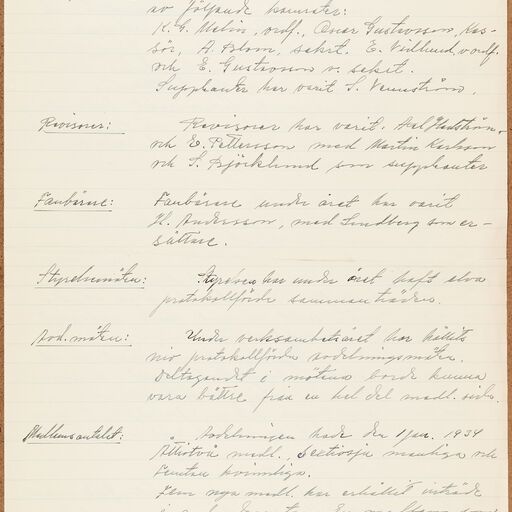 av följande kamrater:
K. G. Melin, ordf., Oscar Gustavsson, kas-
sör, A. Blom, sekret. E. Vidlund, v. ordf.
och E. Gustavsson v. sekret.
Suppleanter har varit S. Vennström.
Revisorer: Revisorer har varit. Axel
och E. Pettersson med Martin Karlsson
och S. Björklund som suppleanter
Fanbärare: Fanbärare under året har varit
H. Andersson, med Lindberg som er-
sättare.
Styrelsemöten: Styrelsen har under året haft elva
protokollförda sammanträden.
Avd. möten: Under verksamhetsåret har hållits
nio protokollförda avdelningsmöten.
Deltagandet i mötena borde kunna
vara bättre från en hel del medl. sida.
Medlemsantalet: Avdelningen hade den 1 jan. 1934
Åttiotvå medl., Sextiosju manliga och
femton kvinnliga.
Fem nya medl. har erhållit inträde